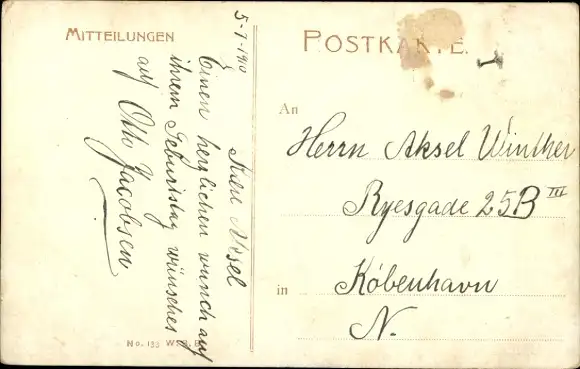 MITTEILUNGEN
POSTKARTE.
5-7-1910
Kære Aksel
Einen herzlichen wunch auf
ihrem Geburtstag wünsches
auf
Otto Jacobsen
An
Herrn Aksel Winther
Ryesgade 25B III
in
København
N.
No. 133 W. & B.